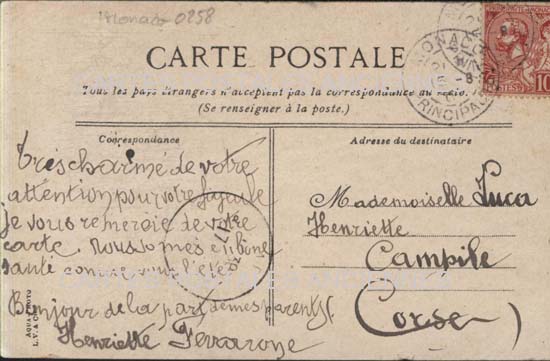 Monaco 0258
CARTE POSTALE
Tous les pays étrangers n'acceptent pas la correspondance au recto.
(Se renseigner à la poste.)
MONACO
PRINCIPAUTÉ
POSTES
10
Correspondance
Adresse du destinataire
très charmé de votre
attention pour votre
je vous remercie de votre
carte. nous somes en bone
santé comme vous l'ête
Bonjour de la part de mes parents
Henriette Ferrarone
Mademoiselle Luca
Henriette
Campile
(Corse)
AQUA PHOTO
L. V. & Cie